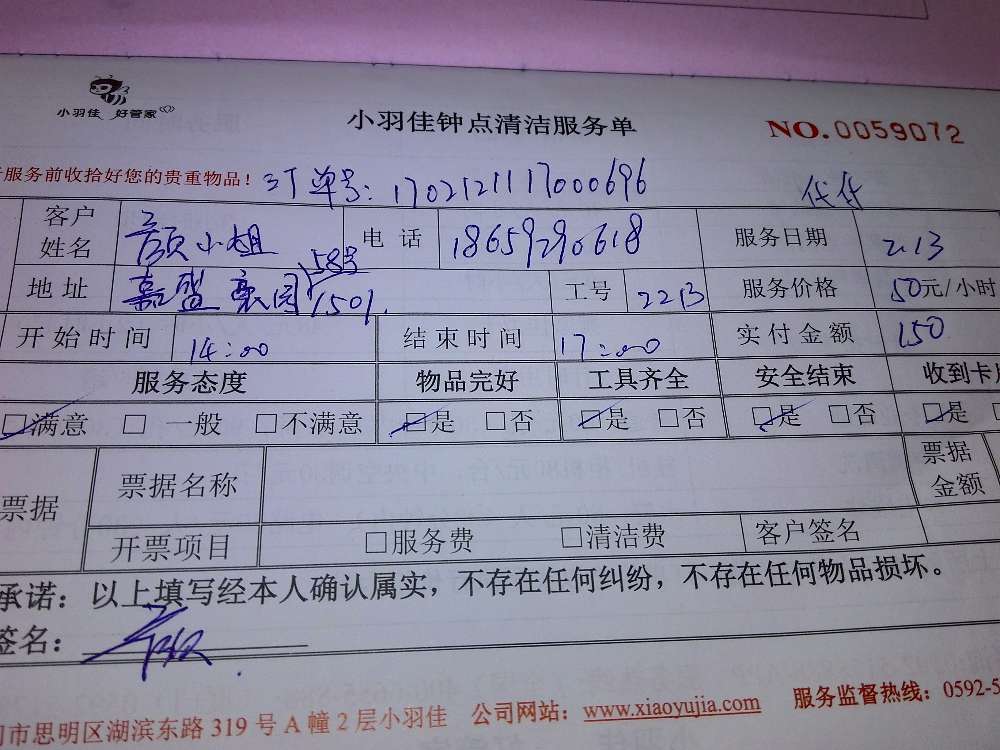 小羽佳 好管家
小羽佳钟点清洁服务单
NO.0059072
服务前收拾好您的贵重物品！ 订单号：1702121117000696 代付
客户姓名 颜小姐 电话 18659290618 服务日期 2.13
地址 嘉盛豪园58号1501. 工号 2213 服务价格 50元/小时
开始时间 14:00 结束时间 17:00 实付金额 150
服务态度 物品完好 工具齐全 安全结束 收到卡
☑满意 □一般 □不满意 ☑是 □否 ☑是 □否 ☑是 □否 ☑是 □
票据 票据名称 票据金额
开票项目 □服务费 □清洁费 客户签名
承诺：以上填写经本人确认属实，不存在任何纠纷，不存在任何物品损坏。
签名：
市思明区湖滨东路 319 号 A 幢 2 层小羽佳 公司网站：www.xiaoyujia.com 服务监督热线：0592-5